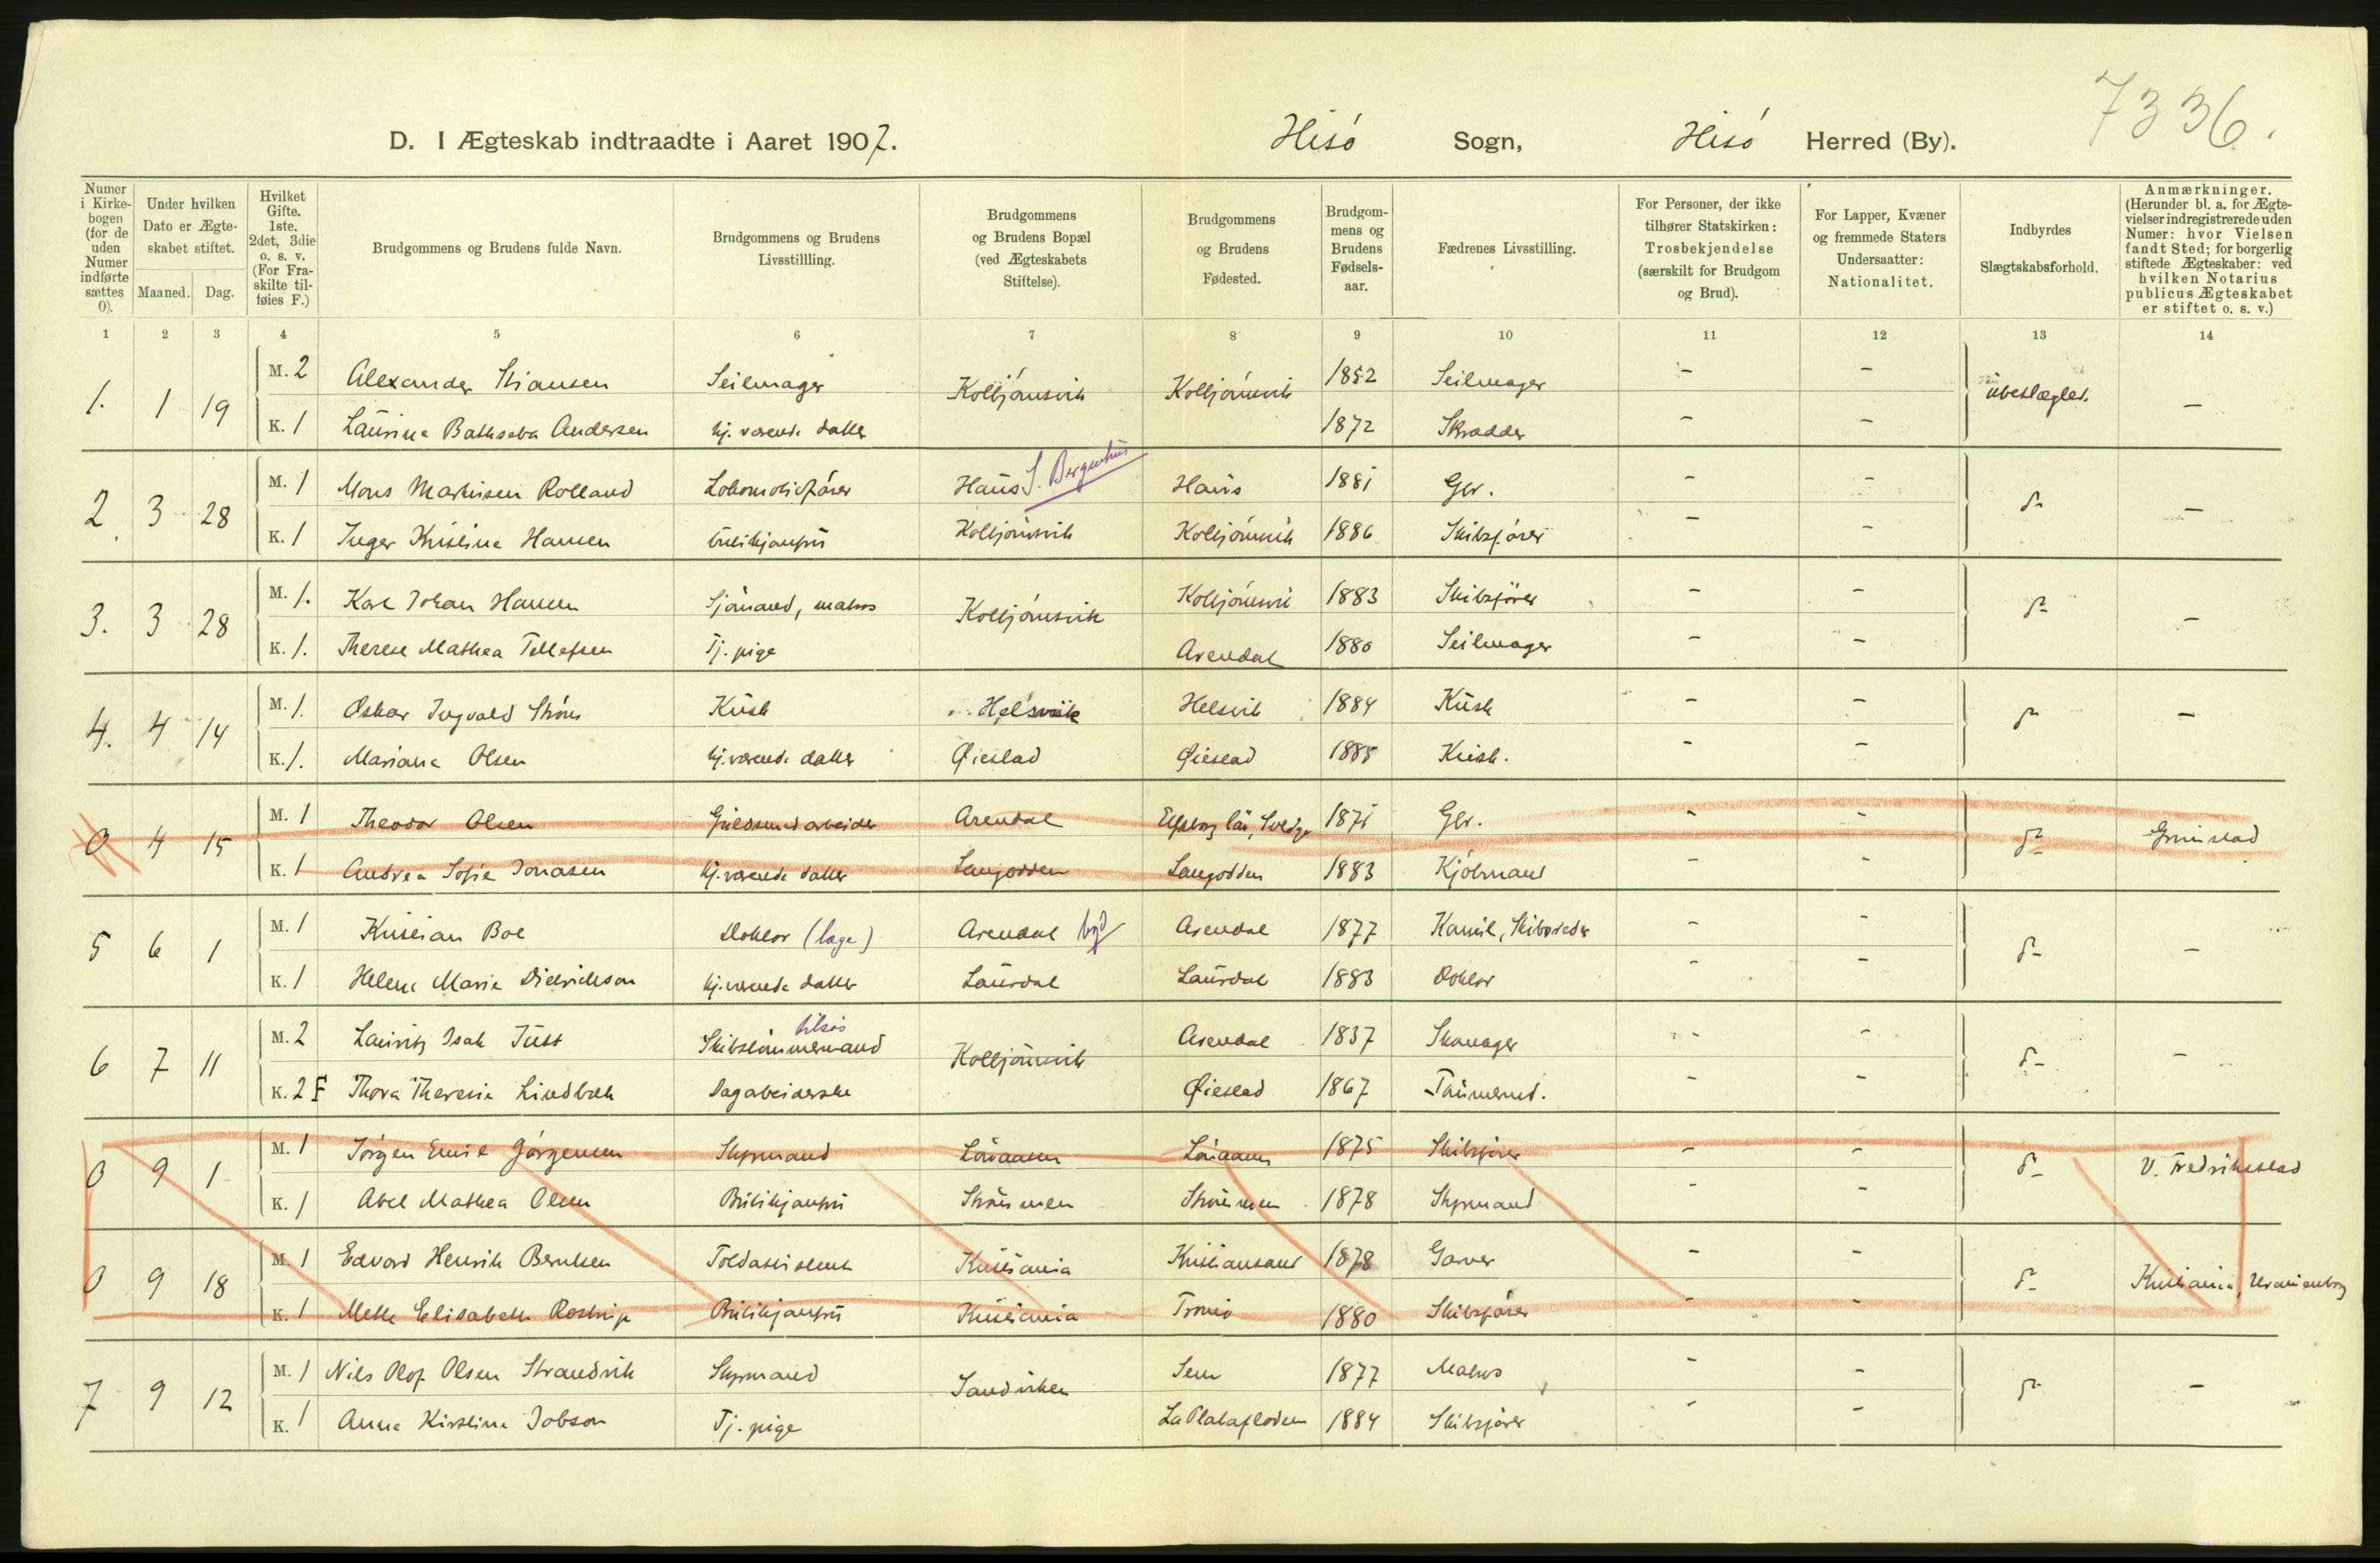 7336.
D. I Ægteskab indtraadte i Aaret 1907. Hisö Sogn, Hisö Herred (By).
Numer i Kirkebogen (for de uden Numer indførte sættes 0).
Under hvilken Dato er Ægteskabet stiftet.
Maaned. Dag.
Hvilket Gifte. 1ste. 2det, 3die o. s. v. (For Fraskilte tilføies F.)
Brudgommens og Brudens fulde Navn.
Brudgommens og Brudens Livsstillling.
Brudgommens og Brudens Bopæl (ved Ægteskabets Stiftelse).
Brudgommens og Brudens Fødested.
Brudgommens og Brudens Fødselsaar.
Fædrenes Livsstilling.
For Personer, der ikke tilhører Statskirken: Trosbekjendelse (særskilt for Brudgom og Brud).
For Lapper, Kvæner og fremmede Staters Undersaatter: Nationalitet.
Indbyrdes Slægtskabsforhold.
Anmærkninger. (Herunder bl. a. for Ægtevielser indregistrerede uden Numer: hvor Vielsen fandt Sted; for borgerlig stiftede Ægteskaber: ved hvilken Notarius publicus Ægteskabet er stiftet o. s. v.)
1 2 3 4 5 6 7 8 9 10 11 12 13 14
1. 1 19 M. 2 Alexander Stiansen Seilmager Kolbjörnsvik Kolbjörnsvik 1852 Seilmager - - ubeslægtet. -
K. 1 Laurine Bathseba Andersen hj. værende datter 1872 Skrædder - -
2. 3 28 M. 1 Mons Martinsen Rolland Lokomotivförer Haus S. Bergenhus Haus 1881 Gbr. - - d- -
K. 1 Inger Kristine Hansen butikjomfru Kolbjörnsvik Kolbjörnsvik 1886 Skibsförer - -
3. 3 28 M. 1. Karl Johan Hansen Sjömand, matros Kolbjörnsvik Kolbjörnsvi 1883 Skibsförer - - d- -
K. 1. Therese Mathea Tellefsen Tj. pige Arendal 1880 Seilmager - -
4. 4 14 M. 1. Oskar Ingvald Ström Kusk Helsvik Helsvik 1884 Kusk - - d- -
K. 1. Mariane Olsen hj. værende datter Øiestad Øiestad 1885 Kusk. - -
0 4 15 M. 1 Theodor Olsen Arendal Elfsborg län, Sverige 1871 Gbr. - - d- Grimstad
K. 1 Andrea Sofie Jonasen hj. værende datter Langodden Langodden 1883 Kjöbmand - -
5 6 1 M. 1 Kristian Boe Doktor (læge) Arendal by Arendal 1877 Skibsreder - - d- -
K. 1 Helene Marie Diedrichson hj. værende datter Laurdal Laurdal 1883 Doktor - -
6 7 11 M. 2 Lauritz Isak Just Skibstömmermand tilsös Kolbjörnsvik Arendal 1837 Skomager - - d- -
K. 2 F Thora Theresie Lindbæk Dagarbeiderske Øiestad 1867 Tömmermd. - -
0 9 1 M. 1 Jörgen Emil Jörgensen Styrmand Lövaasen Lövaasen 1875 Skibsförer - - d- V. Fredrikstad
K. 1 Abel Mathea Olsen Butikjomfru Strömmen Strömmen 1878 Styrmand - -
0 9 18 M. 1 Edvard Henrik Berntsen Toldassistent Kristiania Kristiansand 1878 Garver - - d- Kristiania, Uranienborg
K. 1 Mette Elisabeth Rostrup Butikjomfru Kristiania Tromö 1880 Skibsförer - -
7 9 12 M. 1 Nils Olof Olsen Strandvik Styrmand Sandviken Sem 1877 Matros - - d- -
K. 1 Anna Kirstine Jobson Tj. pige La Platafloden 1884 Skibsförer - -